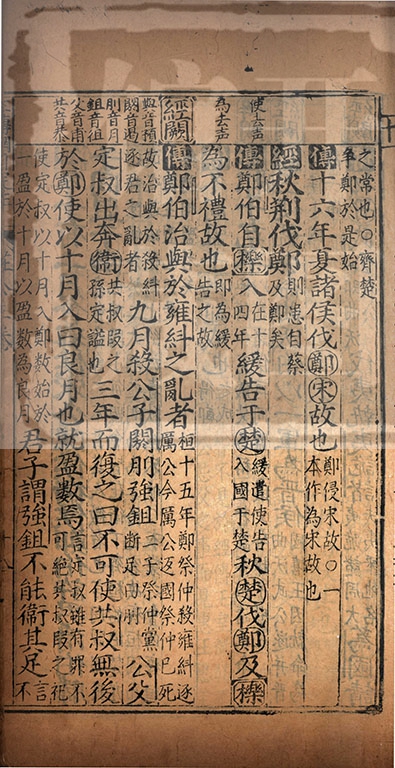 之常也○齊楚
争鄭於是始
傳十六年夏諸侯伐鄭宋故也鄭侵宋故○一本作為宋故也
經秋荆伐鄭則患自蔡及鄭矣
使去声
傳鄭伯自櫟入在十四年緩告于楚緩遣使告入國于楚秋楚伐鄭及櫟
為去声
為不禮故也即為緩告之故
經闕傳鄭伯治與於雍糾之亂者桓十五年鄭祭仲殺雍糾逐厲公今厲公返國祭仲已死
與音預
閼音遏
故治與於殺糾逐君之亂者九月殺公子閼刖強鉏二子祭仲黨斷足曰刖公父
刖音月
鉏音徂
定叔出奔衛共叔叚之孫定謚也三年而復之曰不可使共叔無後
父音甫
共音恭
於鄭使以十月入曰良月也就盈數焉言定叔雖有罪不可絶共叔叚之祀
使定叔以十月入鄭數始於一盈於十月以盈數為良月君子謂強鉏不能衛其足言不